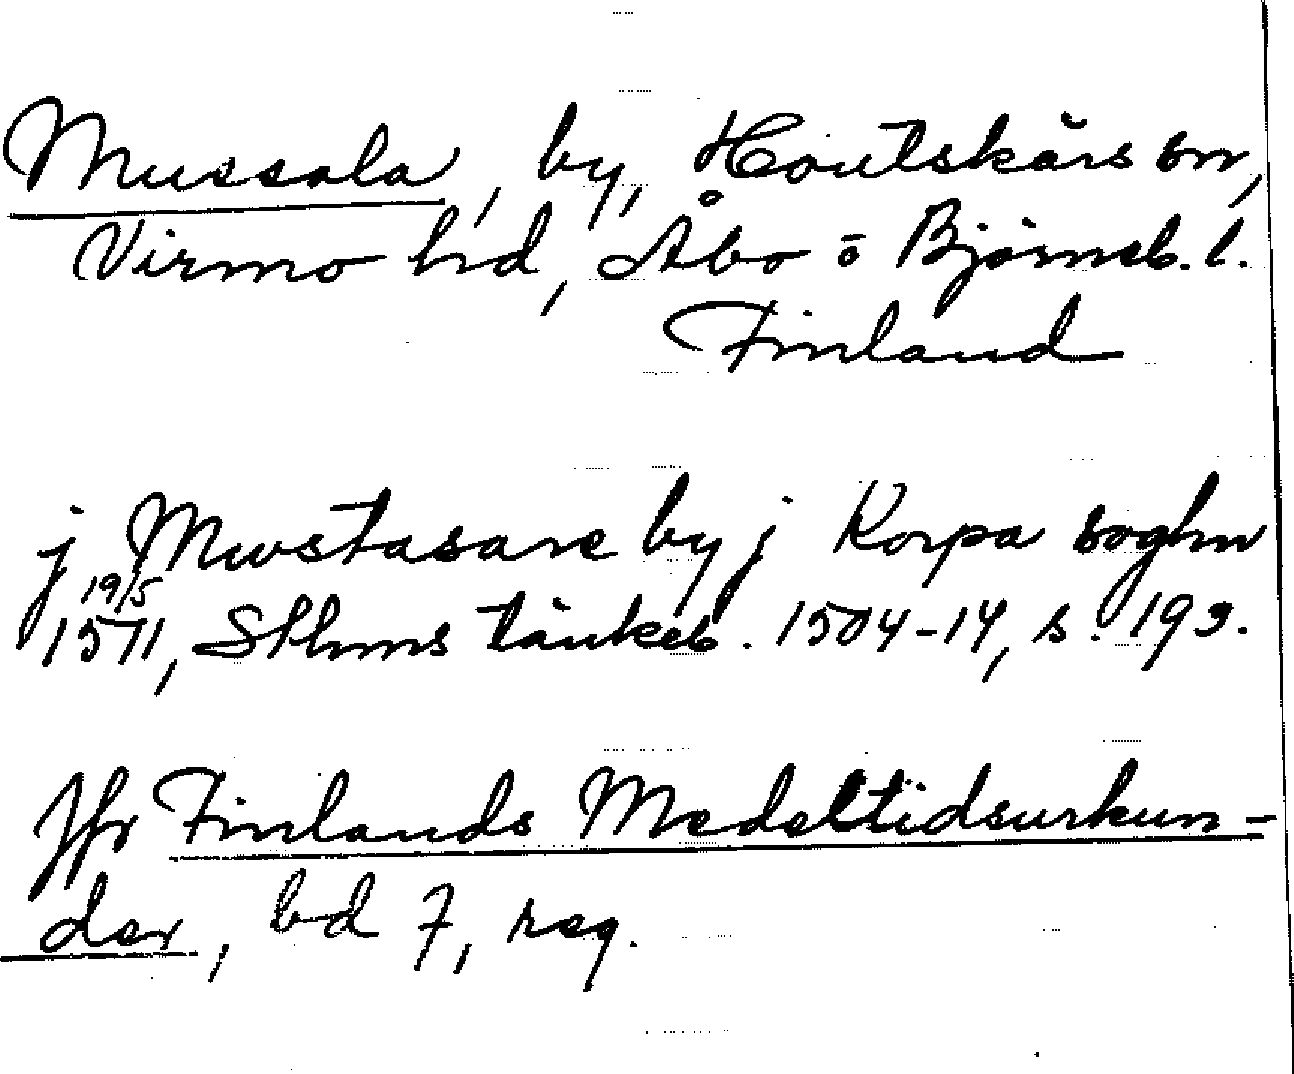 Mussala, by, Houtskärs sn,
Virmo hd, Åbo o Björneb. l.
Finland
j Mwstasare by j Korpa soghn
19/5
1511, Sthms tänkeb. 1504-14, s. 193.
Jfr Finlands Medeltidsurkun-
der, bd 7, reg.